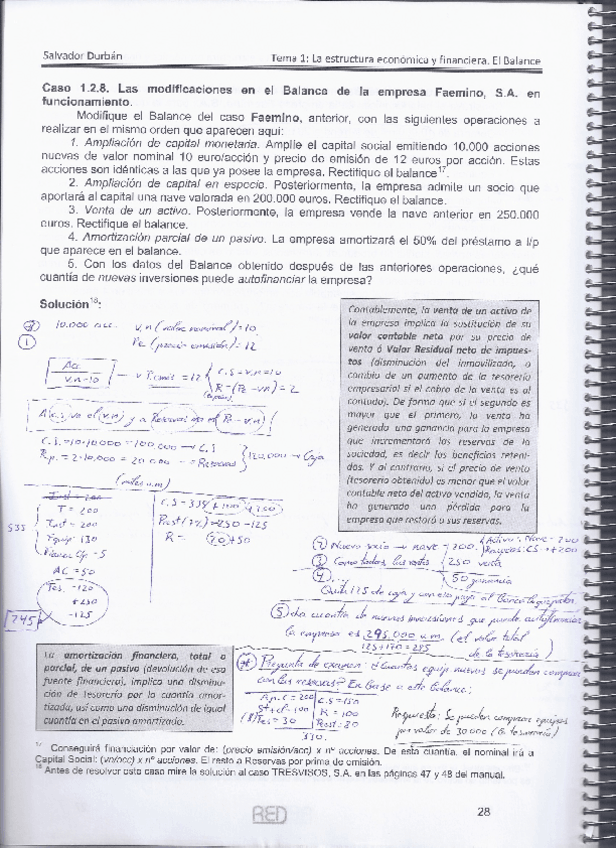 Salvador Durbán
Tema 1: La estructura económica y financiera. El Balance
Caso 1.2.8. Las modificaciones en el Balance de la empresa Faemino, S.A. en
funcionamiento.
Modifique el Balance del caso Faemino, anterior, con las siguientes operaciones a
realizar en el mismo orden que aparecen aquí:
1. Ampliación de capital monetaria. Amplíe el capital social emitiendo 10.000 acciones
nuevas de valor nominal 10 euro/acción y precio de emisión de 12 euros por acción. Estas
acciones son idénticas a las que ya posee la empresa. Rectifique el balance17.
2. Ampliación de capital en especie. Posteriormente, la empresa admite un socio que
aportará al capital una nave valorada en 200.000 euros. Rectifique el balance.
3. Venta de un activo. Posteriormente, la empresa vende la nave anterior en 250.000
euros. Rectifique el balance.
4. Amortización parcial de un pasivo. La empresa amortizará el 50% del préstamo a l/p
que aparece en el balance.
5. Con los datos del Balance obtenido después de las anteriores operaciones, ¿qué
cuantía de nuevas inversiones puede autofinanciar la empresa?
Solución18:
1
10.000 acc. v.n (valor nominal) = 10
Pe (precio emisión) = 12
Ac.
v.n = 10
C.S = v.n = 10
R = (Pe - vn) = 2
C.S. = 10·10000 = 100.000 → C.S
Rp. = 2·10.000 = 20.000 → Reservas
120.000 → Caja
(miles u.m)
T = 200
= 200
Equip 130
- 5
AC = 50
Tes. -120
+250
-125
535
745
C.S = 335 + 100 + 200
-125
R = 20 + 50
Contablemente, la venta de un activo de
la empresa implica la sustitución de su
valor contable neto por su precio de
venta ó Valor Residual neto de impues-
tos (disminución del inmovilizado, a
cambio de un aumento de la tesorería
empresarial si el cobro de la venta es al
contado). De forma que si el segundo es
mayor que el primero, la venta ha
generado una ganancia para la empresa
que incrementará las reservas de la
sociedad, es decir los beneficios reteni-
dos. Y al contrario, si el precio de venta
(tesorería obtenida) es menor que el valor
contable neto del activo vendida, la venta
ha generado una pérdida para la
empresa que restará a sus reservas.
2 Nuevo socio → nave = 200.
Activo: Nave + 200
C.S → + 200
3
250 venta
50 ganancia
4
Quita 125 de caja y con eso paga al banco
5 La cuantía de nuevas inversiones que puede autofinanciar
la empresa es 295.000 u.m (el valor total
de la tesorería)
La amortización financiera, total o
parcial, de un pasivo (devolución de esa
fuente financiera), implica una disminu-
ción de tesorería por la cuantía amor-
tizada, así como una disminución de igual
cuantía en el pasivo amortizado.
Pregunta de examen: ¿Cuántos equip nuevos se pueden comprar
con las reservas? En base a este balance:
= 200
= 100
Tes = 30
C.S = 150
R = 100
= 80
330.
Respuesta: Se pueden comprar equipos
por valor de 30000 (la tesorería)
17 Conseguirá financiación por valor de: (precio emisión/acc) x nº acciones. De esta cuantía, el nominal irá a
Capital Social: (vn/acc) x nº acciones. El resto a Reservas por prima de emisión.
18 Antes de resolver este caso mire la solución al caso TRESVISOS, S.A. en las páginas 47 y 48 del manual.
RED
28